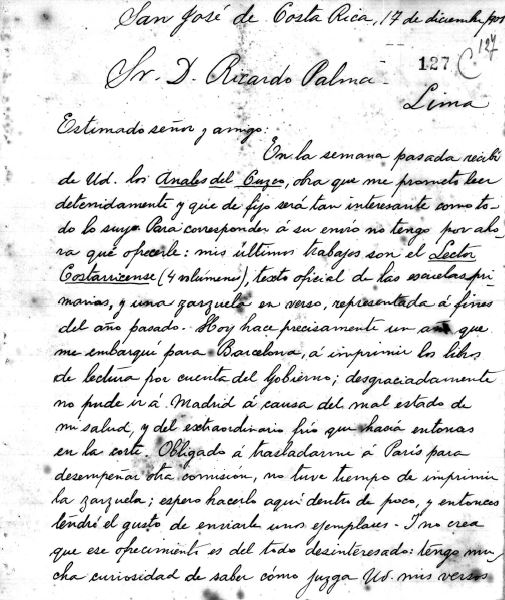 San José de Costa Rica, 17 de diciembre/901
127 127
Sr. D. Ricardo Palma
Lima
Estimado señor y amigo:
En la semana pasada recibí
de Ud. los Anales del Cuzco, obra que me prometo leer
detenidamente y que de fijo será tan interesante como to-
do lo suyo. Para corresponder á su envío no tengo por aho-
ra qué ofrecerle: mis últimos trabajos son el Lector
Costarricense (4 volúmenes), texto oficial de las escuelas pri-
marias, y una zarzuela en verso, representada á fines
del año pasado. Hoy hace precisamente un año que
me embarqué para Barcelona, á imprimir los libros
de lectura por cuenta del Gobierno; desgraciadamente
no pude ir á Madrid á causa del mal estado de
mi salud, y del extraordinario frío que hacía entonces
en la corte. Obligado á trasladarme á París para
desempeñar otra comisión, no tuve tiempo de imprimir
la zarzuela; espero hacerlo aquí dentro de poco, y entonces
tendré el gusto de enviarle unos ejemplares. Y no crea
que ese ofrecimiento es del todo desinteresado: tengo mu-
cha curiosidad de saber cómo juzga Ud. mis versos